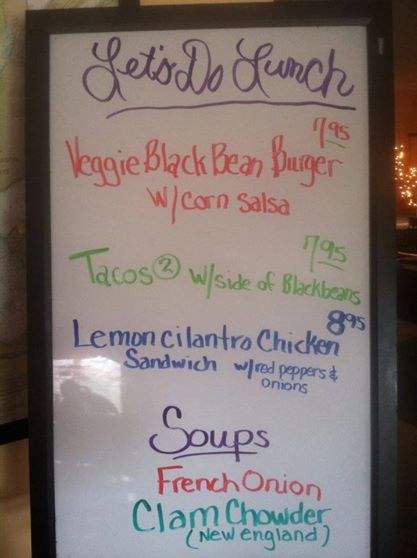 Let's Do Lunch
7.95
Veggie Black Bean Burger
w/corn salsa
7.95
Tacos ② w/side of Blackbeans
8.95
Lemon cilantro Chicken
Sandwich w/red peppers &
onions
Soups
French Onion
Clam Chowder
(New england)